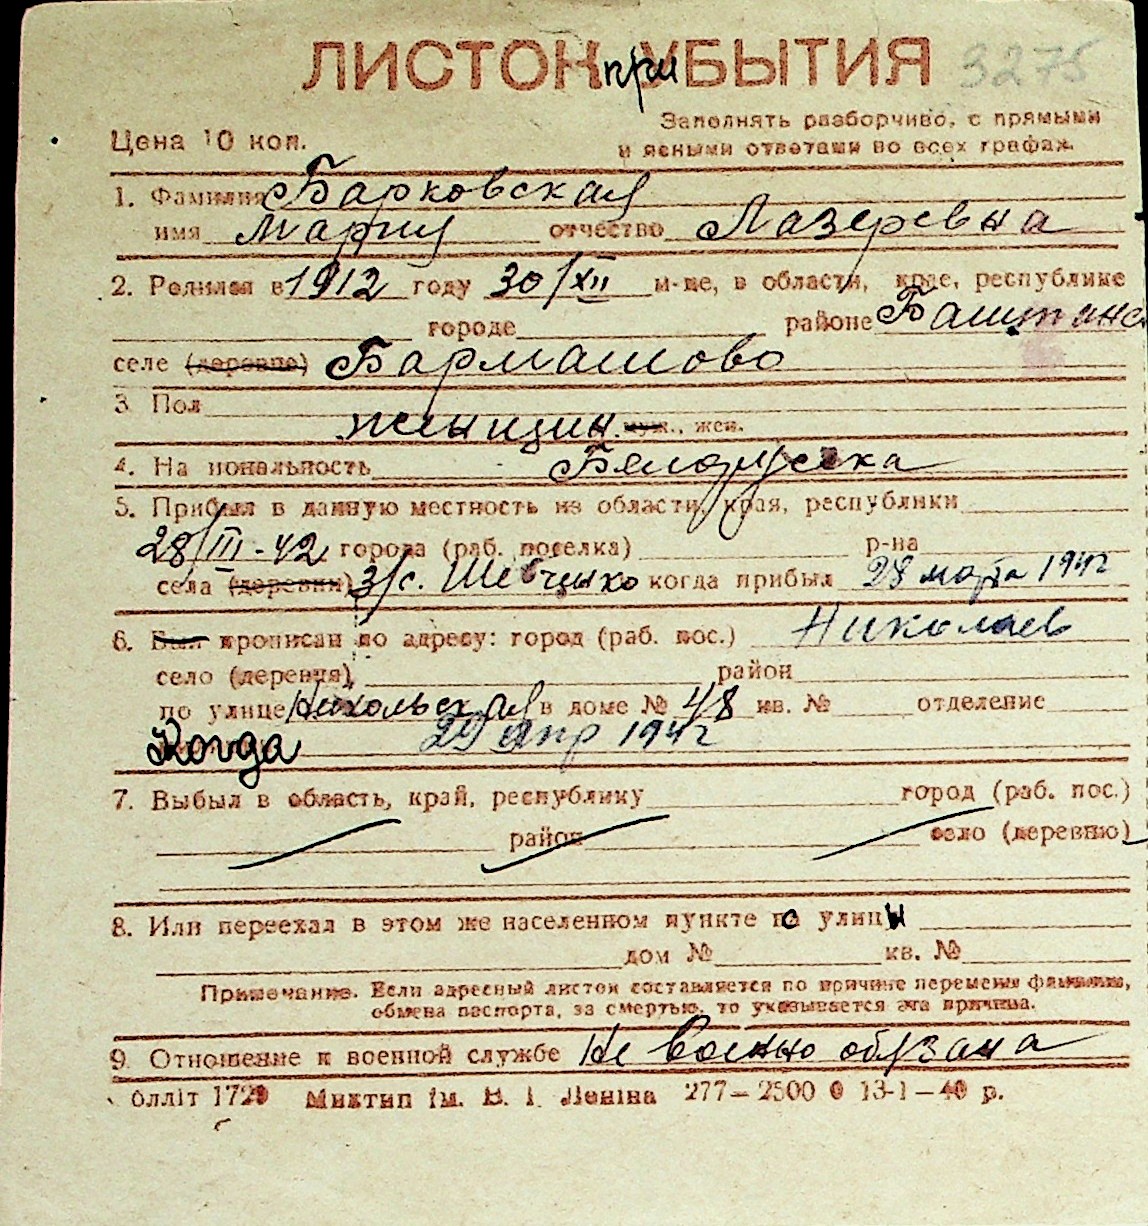 ЛИСТОК при УБЫТИЯ 3275
Заполнять разборчиво, с прямыми
Цена 10 коп. и ясными ответами во всех графах.
1. Фамилия Барковская
имя Мария отчество Лазеревна
2. Родился в 1912 году 30/XII м-це, в области, крае, республике
городе районе Баштанс
селе (деревне) Бармашово
3 Пол
женщин. муж., жен.
4. На иональность Белоруска
5. Прибыл в данную местность из области, края, республики
28/III-42 города (раб. поселка) р-на
села (деревни) З/с. Шевченко когда прибыл 28 марта 1942
6. Был прописан по адресу: город (раб. пос.) Николаев
село (деревня) район
по улице Никольская в доме № 48 кв. № отделение
Когда 29 апр 1942
7. Выбыл в область, край, республику город (раб. пос.)
район село (деревню)
8. Или переехал в этом же населенном пункте по улицы
дом № кв. №
Примечание. Если адресный листок составляется по причине перемены фамилии,
обмена паспорта, за смертью, то указывается эта причина.
9. Отношение к военной службе Не военно обязана
блліт 1729 Миктип ім. В. І. Леніна 277—2500 13-1—40 р.